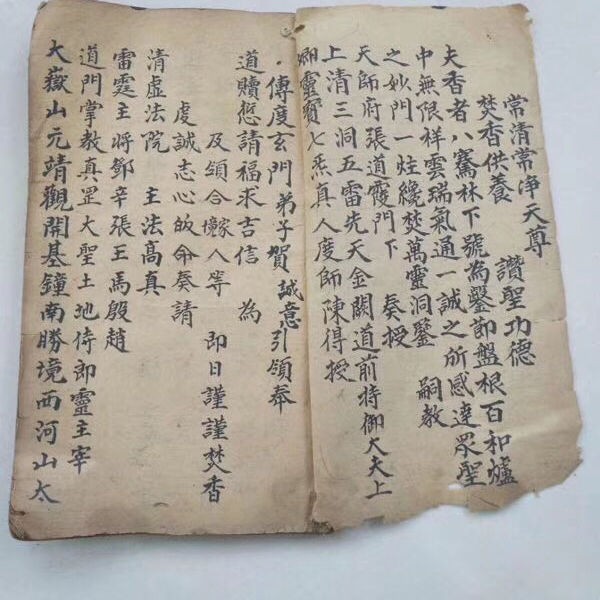 常清常淨天尊　讚聖功德
焚香供養
夫香者八騫林下號為鑿節盤根百和爐
中無限祥雲瑞氣通一誠之所感達眾聖
之妙門一炷纔焚萬靈洞鑒　嗣教
天師府張道霞門下　奏授
上清三洞五雷先天金闕道前持御大夫上
卿靈寶七炁真人度師陳得授
傳度玄門弟子賀誠意引領奉
道贖愆請福求吉信　為
及領合人等　即日謹謹焚香
虔誠志心皈命奏請
清虛法院　主法高真
雷霆主將鄧辛張王馬殷趙
道門掌教真罡大聖土地侍郎靈主宰
大嶽山元靖觀開基鐘南勝境西河山太